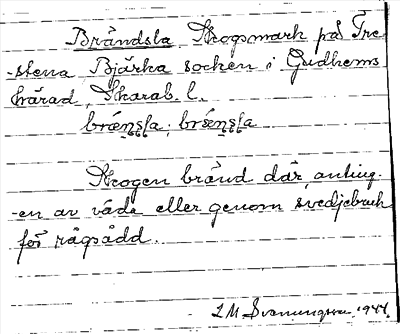 Brändsla Skogsmark på Tre-
-stena Bjärka socken i Gudhems
härad, Skarab. l.
brænsla, brǽnsla
Skogen bränd där, anting-
-en av våda eller genom svedjebruk
för rågsådd.
1944